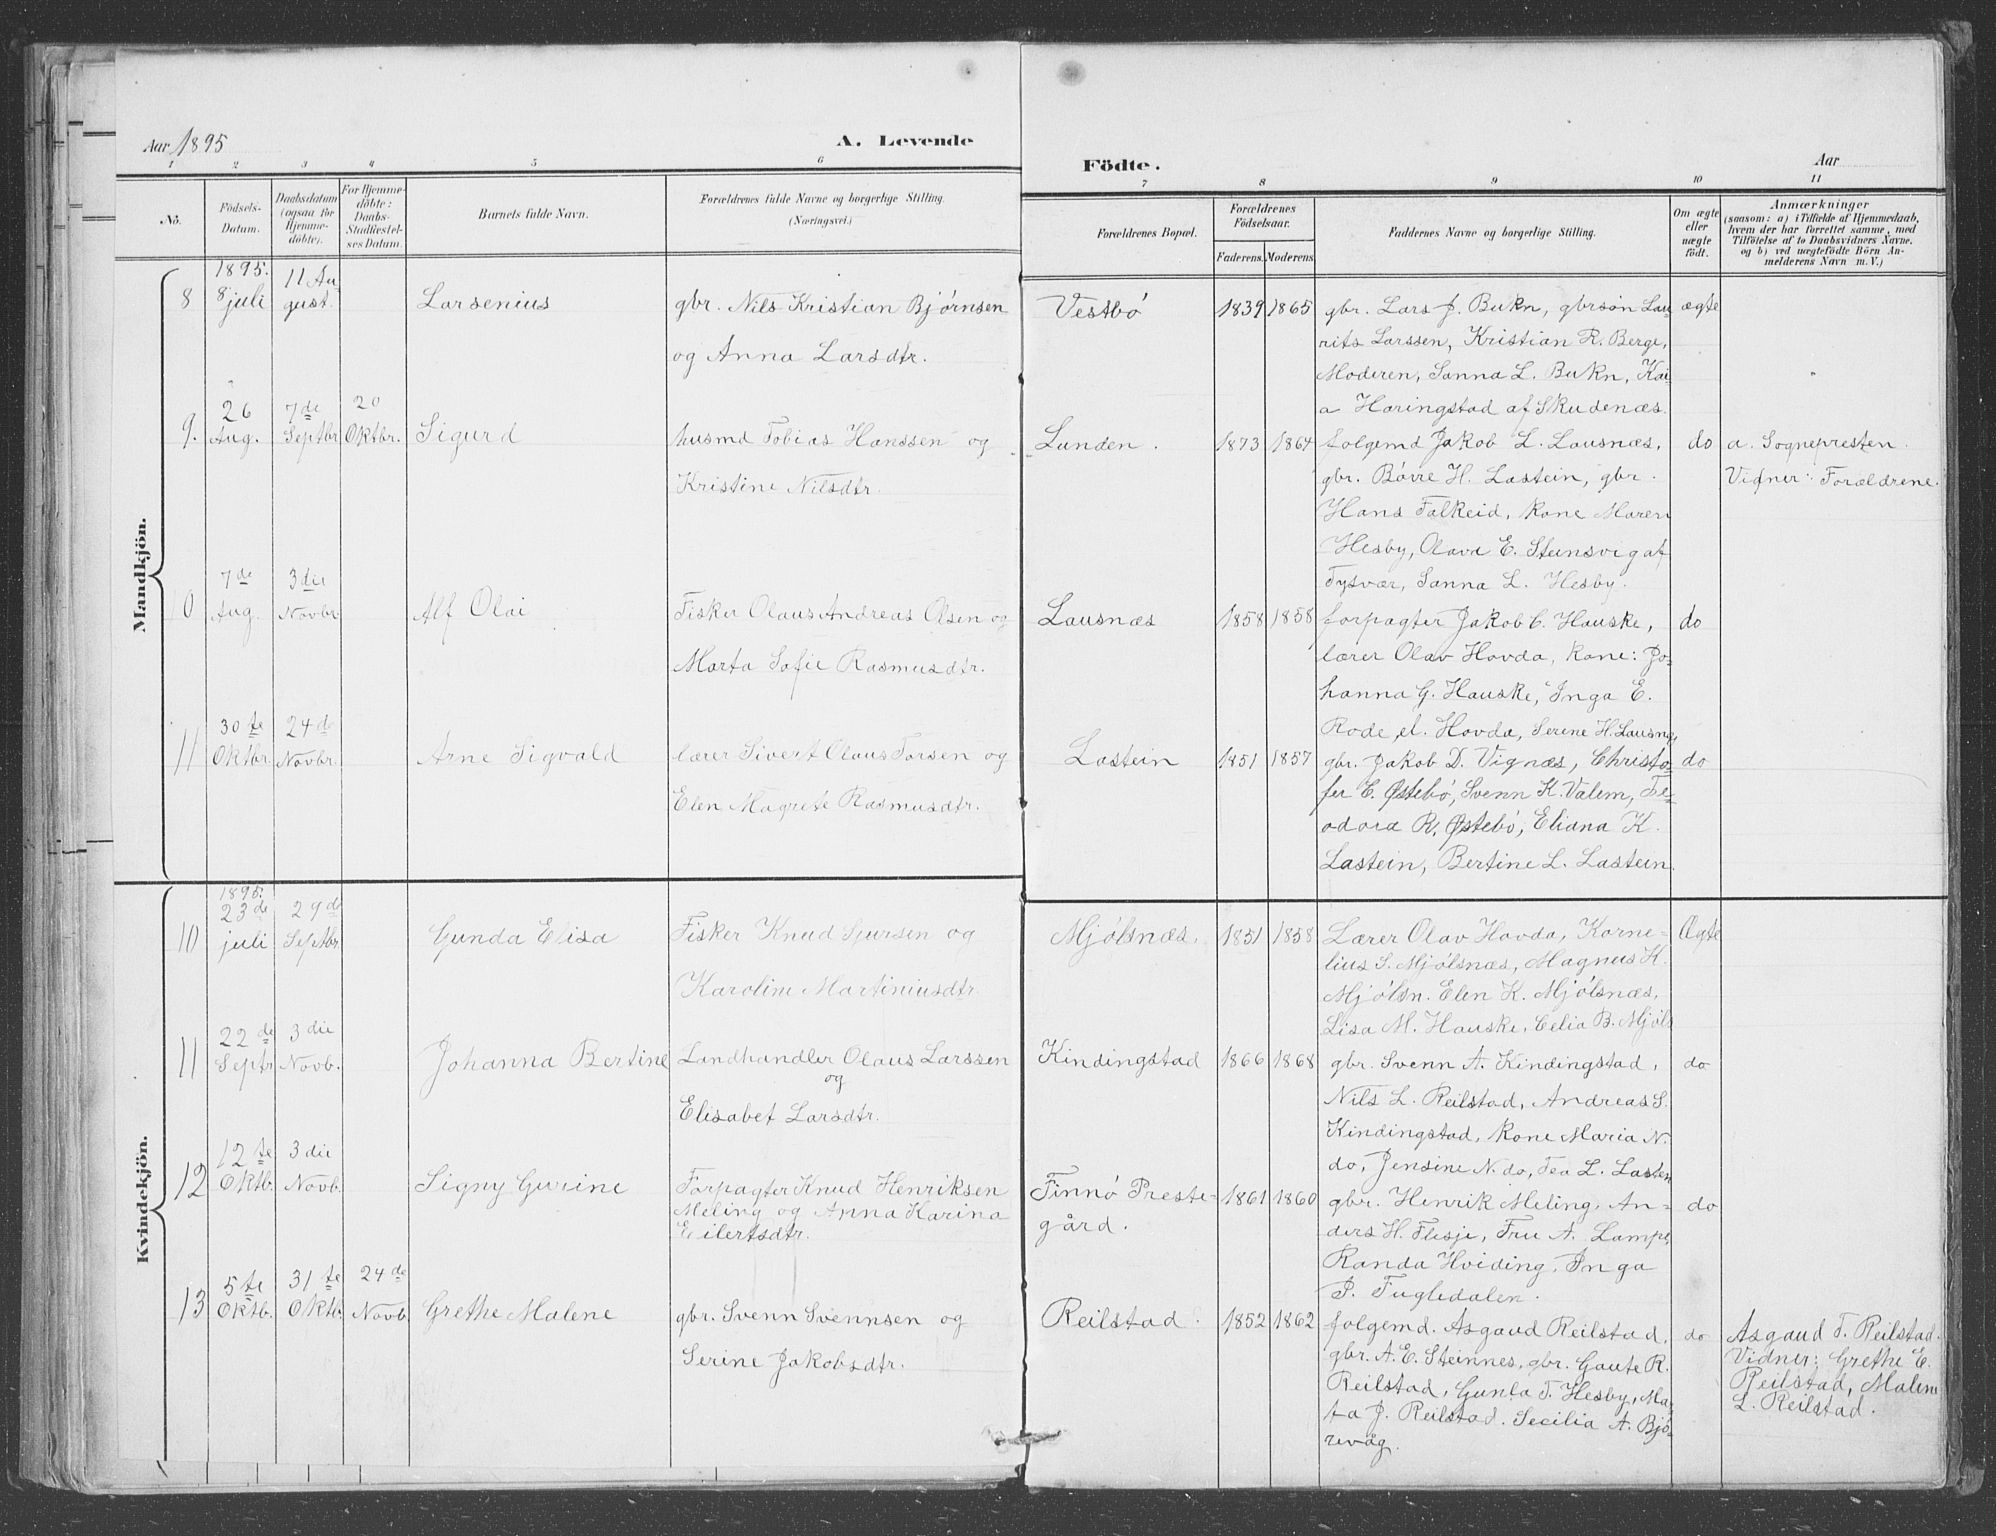 Aar 1895
A. Levende
Födte.
Aar
1 2 3 4 5 6
7 8 9 10 11
No.
Födsels-
Datum.
Daabsdatum
(ogsaa for
Hjemme-
döbte).
For Hjemme-
döbte:
Daabs-
Stadfæstel-
ses Datum.
Barnets fulde Navn.
Forældrenes fulde Navne og borgerlige Stilling.
(Næringsvei.)
Forældrenes Bopæl.
Forældrenes
Födselsaar.
Faderens. Moderens.
Faddernes Navne og borgerlige Stilling.
Om ægte
eller
uægte
födt.
Anmærkninger
(saasom: a) i Tilfælde af Hjemmedaab,
hvem der har forrettet samme, med
Tilföielse af to Daabsvidners Navne.
og b) ved uægtefödte Börn An-
melderens Navn m. V.)
Mandkjön.
8
1895.
8 juli
11 Au
gust.
Larsenius
gbr. Nils Kristian Bjørnsen
og Anna Larsdtr.
Vestbö
1839 1865
gbr. Lars J. Bukn, gbrsøn Lau-
rits Larssen, Kristian R. Berge,
Moderen, Sanna L. Bukn, Kai-
a Haringstad af Skudenæs.
ægte
9.
26
Aug.
7de
Septbr
20
Oktbr.
Sigurd
husmd Tobias Hanssen og
Kristine Nilsdtr.
Lunden.
1873 1864
folgemd Jakob L. Lausnæs,
gbr. Bövre H. Lastein, gbr.
Hans Falkeid, kone Maren
Hesby, Olava E. Stensvig af
Tysvær, Sanna L. Hesby.
do
a. Sognepresten.
Vidner: Forældrene.
10
7de
Aug.
3die
Novbr.
Alf Olai
Fisker Olaus Andreas Olsen og
Marta Sofie Rasmusdtr.
Lausnæs
1858 1858
forpagter Jakob C. Hauske,
lærer Olav Hovda, kone: Jo-
hanna G. Hauske, Inga E.
Rode, el. Hovda, Serene H. Lausnæs
do
11
30te
Oktbr.
24de
Novbr.
Arne Sigvald
lærer Sivert Olaus Torsen og
Elen Magrete Rasmusdtr.
Lastein
1851 1857
gbr. Jakob D. Vignæs, Christo-
fer E. Østebö, Svenn K. Valem, Te-
odora R. Østebö, Eliana K.
Lastein, Bertine L. Lastein.
do
Kvindekjön.
10
1895.
23de
juli
29de
Septbr
Gunda Elisa
Fisker Knud Sjursen og
Karoline Martiniusdtr.
Mjölsnæs.
1851 1858
Lærer Olav Hovda, Korne-
lius S. Mjölsnæs, Magnus K.
Mjölsn. Elen K. Mjölsnæs,
Lisa M. Hauske, Celia B. Mjöls
Ægte
11
22de
Septr
3die
Novb.
Johanna Bertine
Landhandler Olaus Larssen
og
Elisabet Larsdtr.
Kindingstad
1866 1868
gbr. Svenn A. Kindingstad,
Nils L. Reilstad, Andreas S.
Kindingstad, kone Maria N.
do, Jensine N. do, Tea L. Lastein
do
12
12te
Oktb.
3die
Novb.
Signy Gurine
Forpagter Knud Henriksen
Meling og Anna Karina
Eilertsdtr.
Finnö Preste-
gård.
1861 1860
gbr. Henrik Meling, An-
ders H. Flesje, Fru A. Lampe,
Randa Hviding, Inga
P. Fugledalen.
do
13
5te
Oktb.
31te
Oktb.
24de
Novb.
Grethe Malene
gbr. Svenn Svennsen og
Serine Jakobsdtr.
Reilstad.
1852 1862
folgemd. Asgaud Reilstad,
gbr. A. E. Steinnes, gbr. Gaute R.
Reilstad, Gunla T. Hesby, Ma-
ta J. Reilstad. Secilia A. Bjö-
revåg.
do
Asgaud T. Reilstad.
Vidner: Grethe E.
Reilstad, Malene
L. Reilstad.